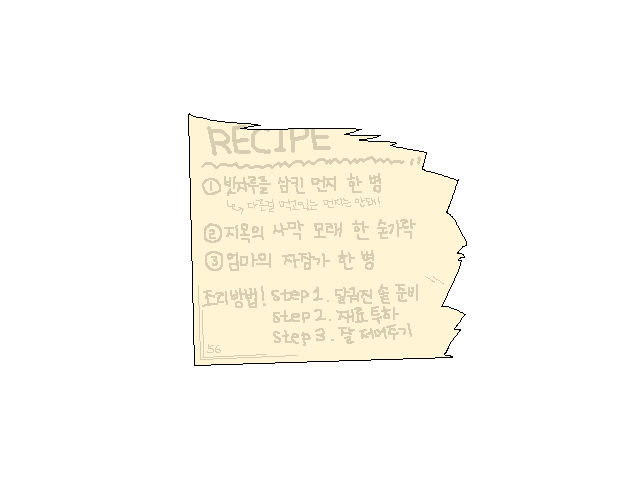 RECIPE
① 빗자루를 삼킨 먼지 한 병
↳ 다른걸 먹고있는 먼지는 안돼!
② 지옥의 사막 모래 한 숟가락
③ 엄마의 자장가 한 병
조리방법! step 1. 달궈진 솥 준비
step 2. 재료 투하
step 3. 잘 저어주기
56